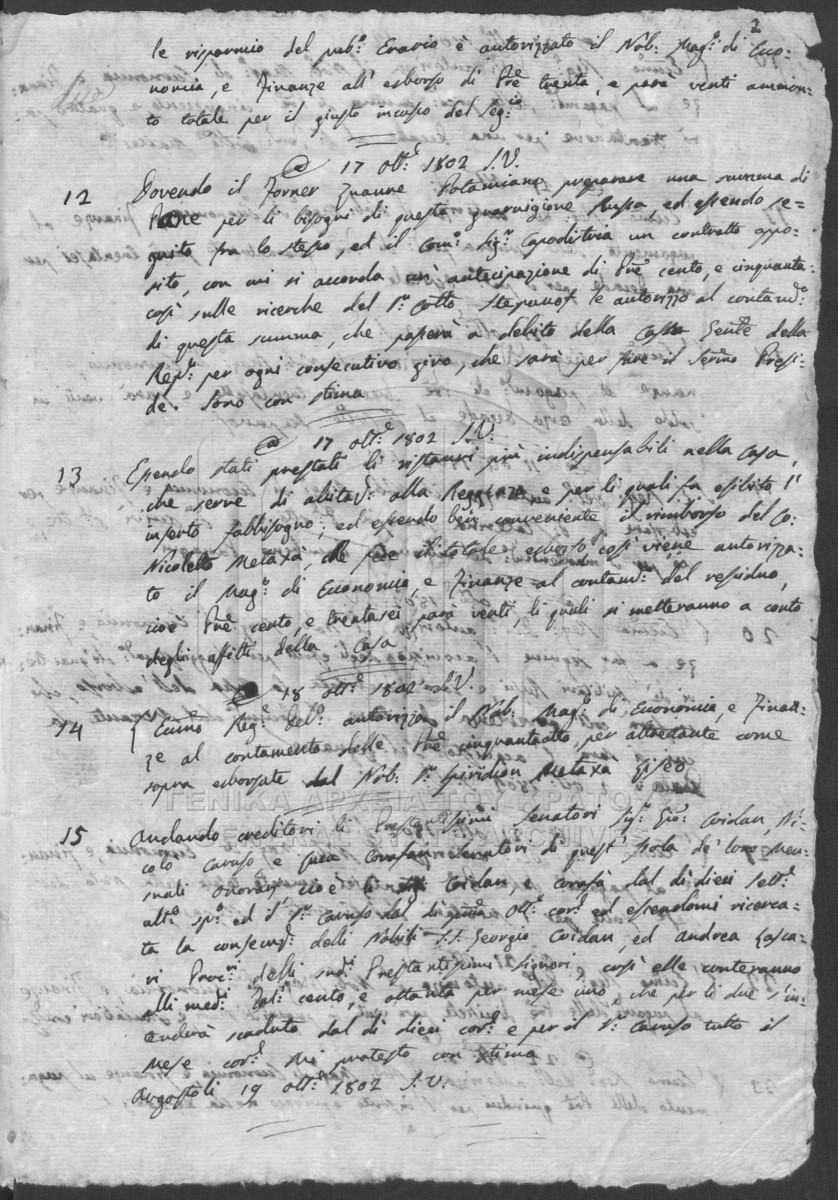 2
le risparmio del pub:º Erario è autorizzato il Nob: Mag:º di Eco=
nomia, e Finanze all' esborso di Prẽ trenta, e parà venti ammon=
to totale per il giusto incasso del Seg:io
@ 17 ott:e 1802 S.V.
12 Dovendo il Forner Zuanne Potamiano preparare una summa di
Pane per li bisogni di questa guarnigione Russa ed essendo se=
guito fra lo stesso, ed il Com:º Sig:r Capodistria un contratto appo=
sito, con cui si accorda un' antecipazione di Prẽ cento, e cinquanta=
così sulle ricerche del S:r Cotto Stepanof le autorizzo al contand:º
di questa summa, che passerà a debito della Cassa Gen:le della
Rep:ca per ogni consecutivo giro, che sarà per fare il Ser:mo Presi=
de. Sono con stima
@ 17 ott:e 1802 S.V.
13 Essendo stati prestati li ristauri più indispensabili nella Casa,
che serve di abitaz: alla Reggenza e per li quali fu esibito l'
inserto fabbisogno; ed essendo ben conveniente il rimborso del Co:
Nicoletto Metaxà, che fece il totale esborso, così viene autorizza=
to il Mag:º di Economia, e Finanze al contand: del residuo,
cioè Prẽ cento, e trentasei parà venti, li quali si metteranno a conto
degli affitti della Casa
18 ott:e 1802 S.V.
14 L' Eccmõ Reg:e Del:º autorizza il Nob: Mag:º di Economia, e Finan=
ze al contamento delle Prẽ cinquantaotto, per altretante come
sopra esborsate dal Nob: S:r Spiridion Metaxà
ΓΕΝΙΚΑ ΑΡΧΕΙΑ ΤΟΥ ΚΡΑΤΟΥΣ
GENERAL STATE ARCHIVES
15 Andando creditori li Prestantissimi Senatori Sig:ri Gio: Coidan, Ni=
colò Caruso e Senatori di quest' Isola de' loro men=
suali onorarj, cioè li Coidan, e dal dì dieci Sett:e
alt:º sp:º ed il S:r Caruso dal dì Ott:e cor:e ed essendomi ricerca=
ta la consecuz: delli Nobili S.S. Georgio Coidan, ed Andrea Lasca=
ri Proc:ri delli sud:i Prestantissimi Signori, così elle conteranno
alli med:i Tal:i cento, e ottanta per mese uno, che per li due s' in=
tenderà scaduto dal dì dieci cor:e e per il S:r Caruso tutto il
mese cor:e Mi protesto con stima
Argostoli 19 ott:e 1802 S.V.